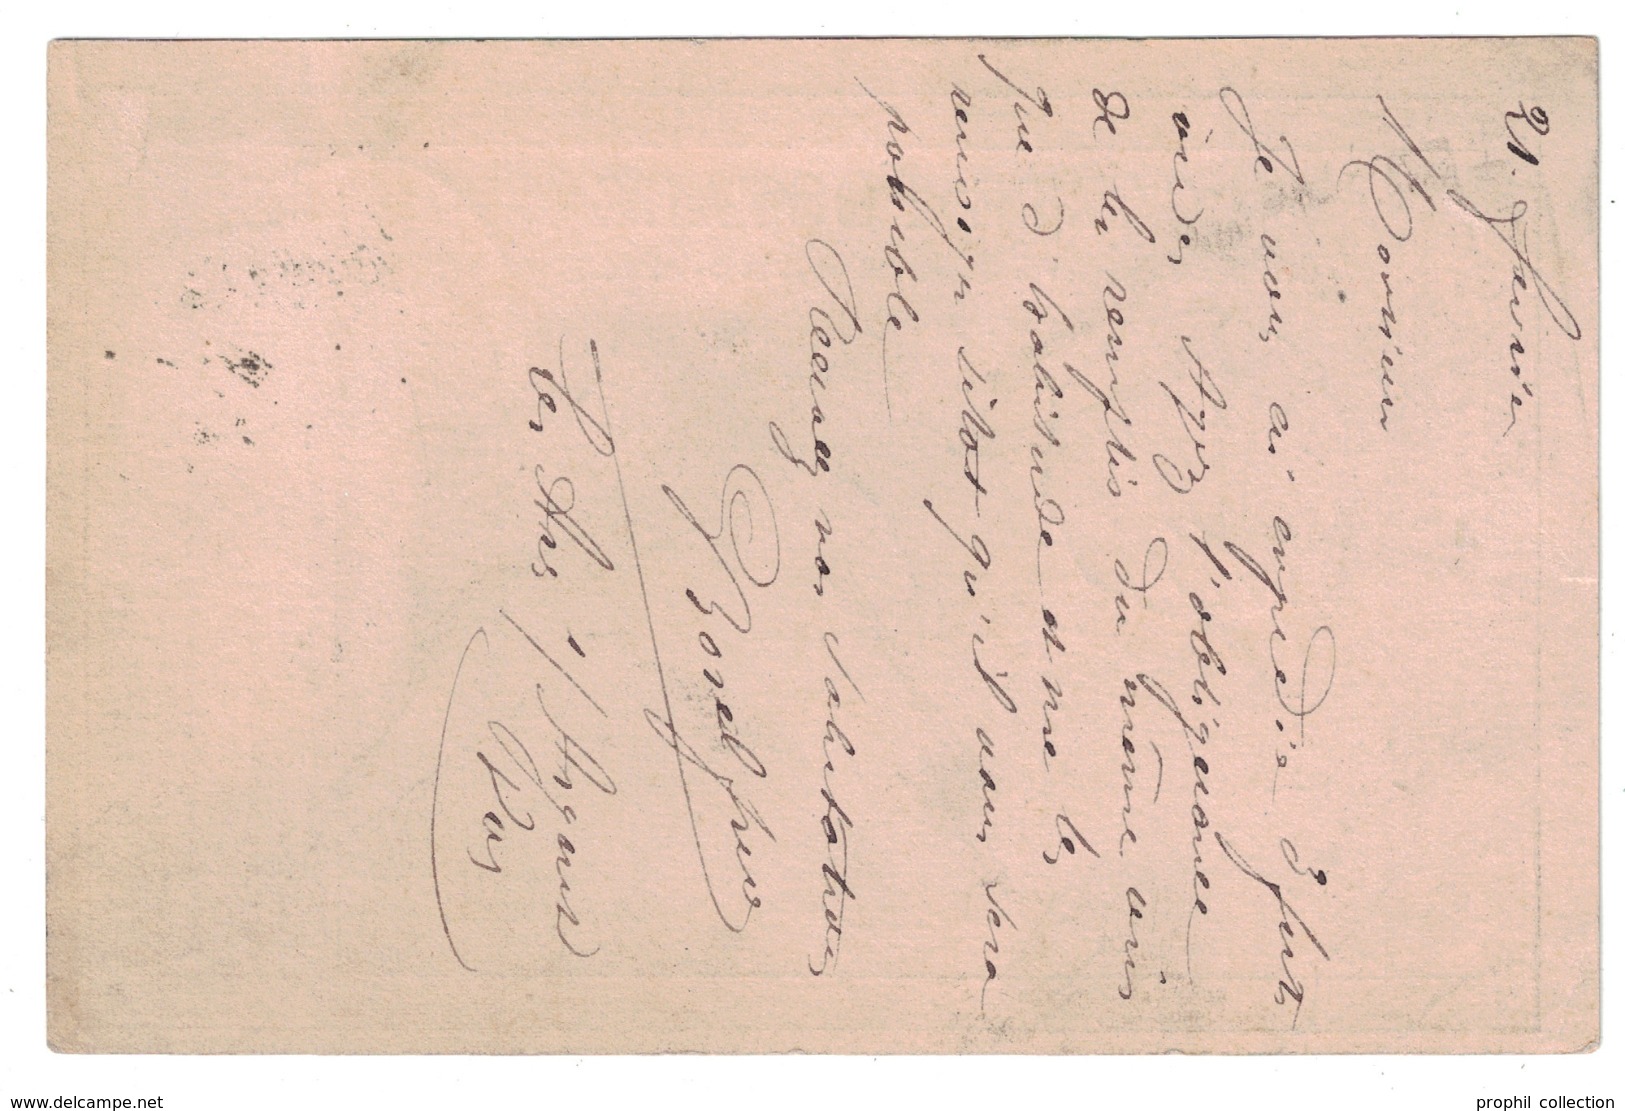 21. Janvier
Monsieur
Je vous ai expedié 3 futs
vides Ayez l'obligeance
de les remplir du même vin
que d'habitude et me les
renvoyer sitot qu'il vous sera
possible
Recevez nos salutations
Borel frere
les Ans s/ Argens
Var
www.delcampe.net
prophil collection